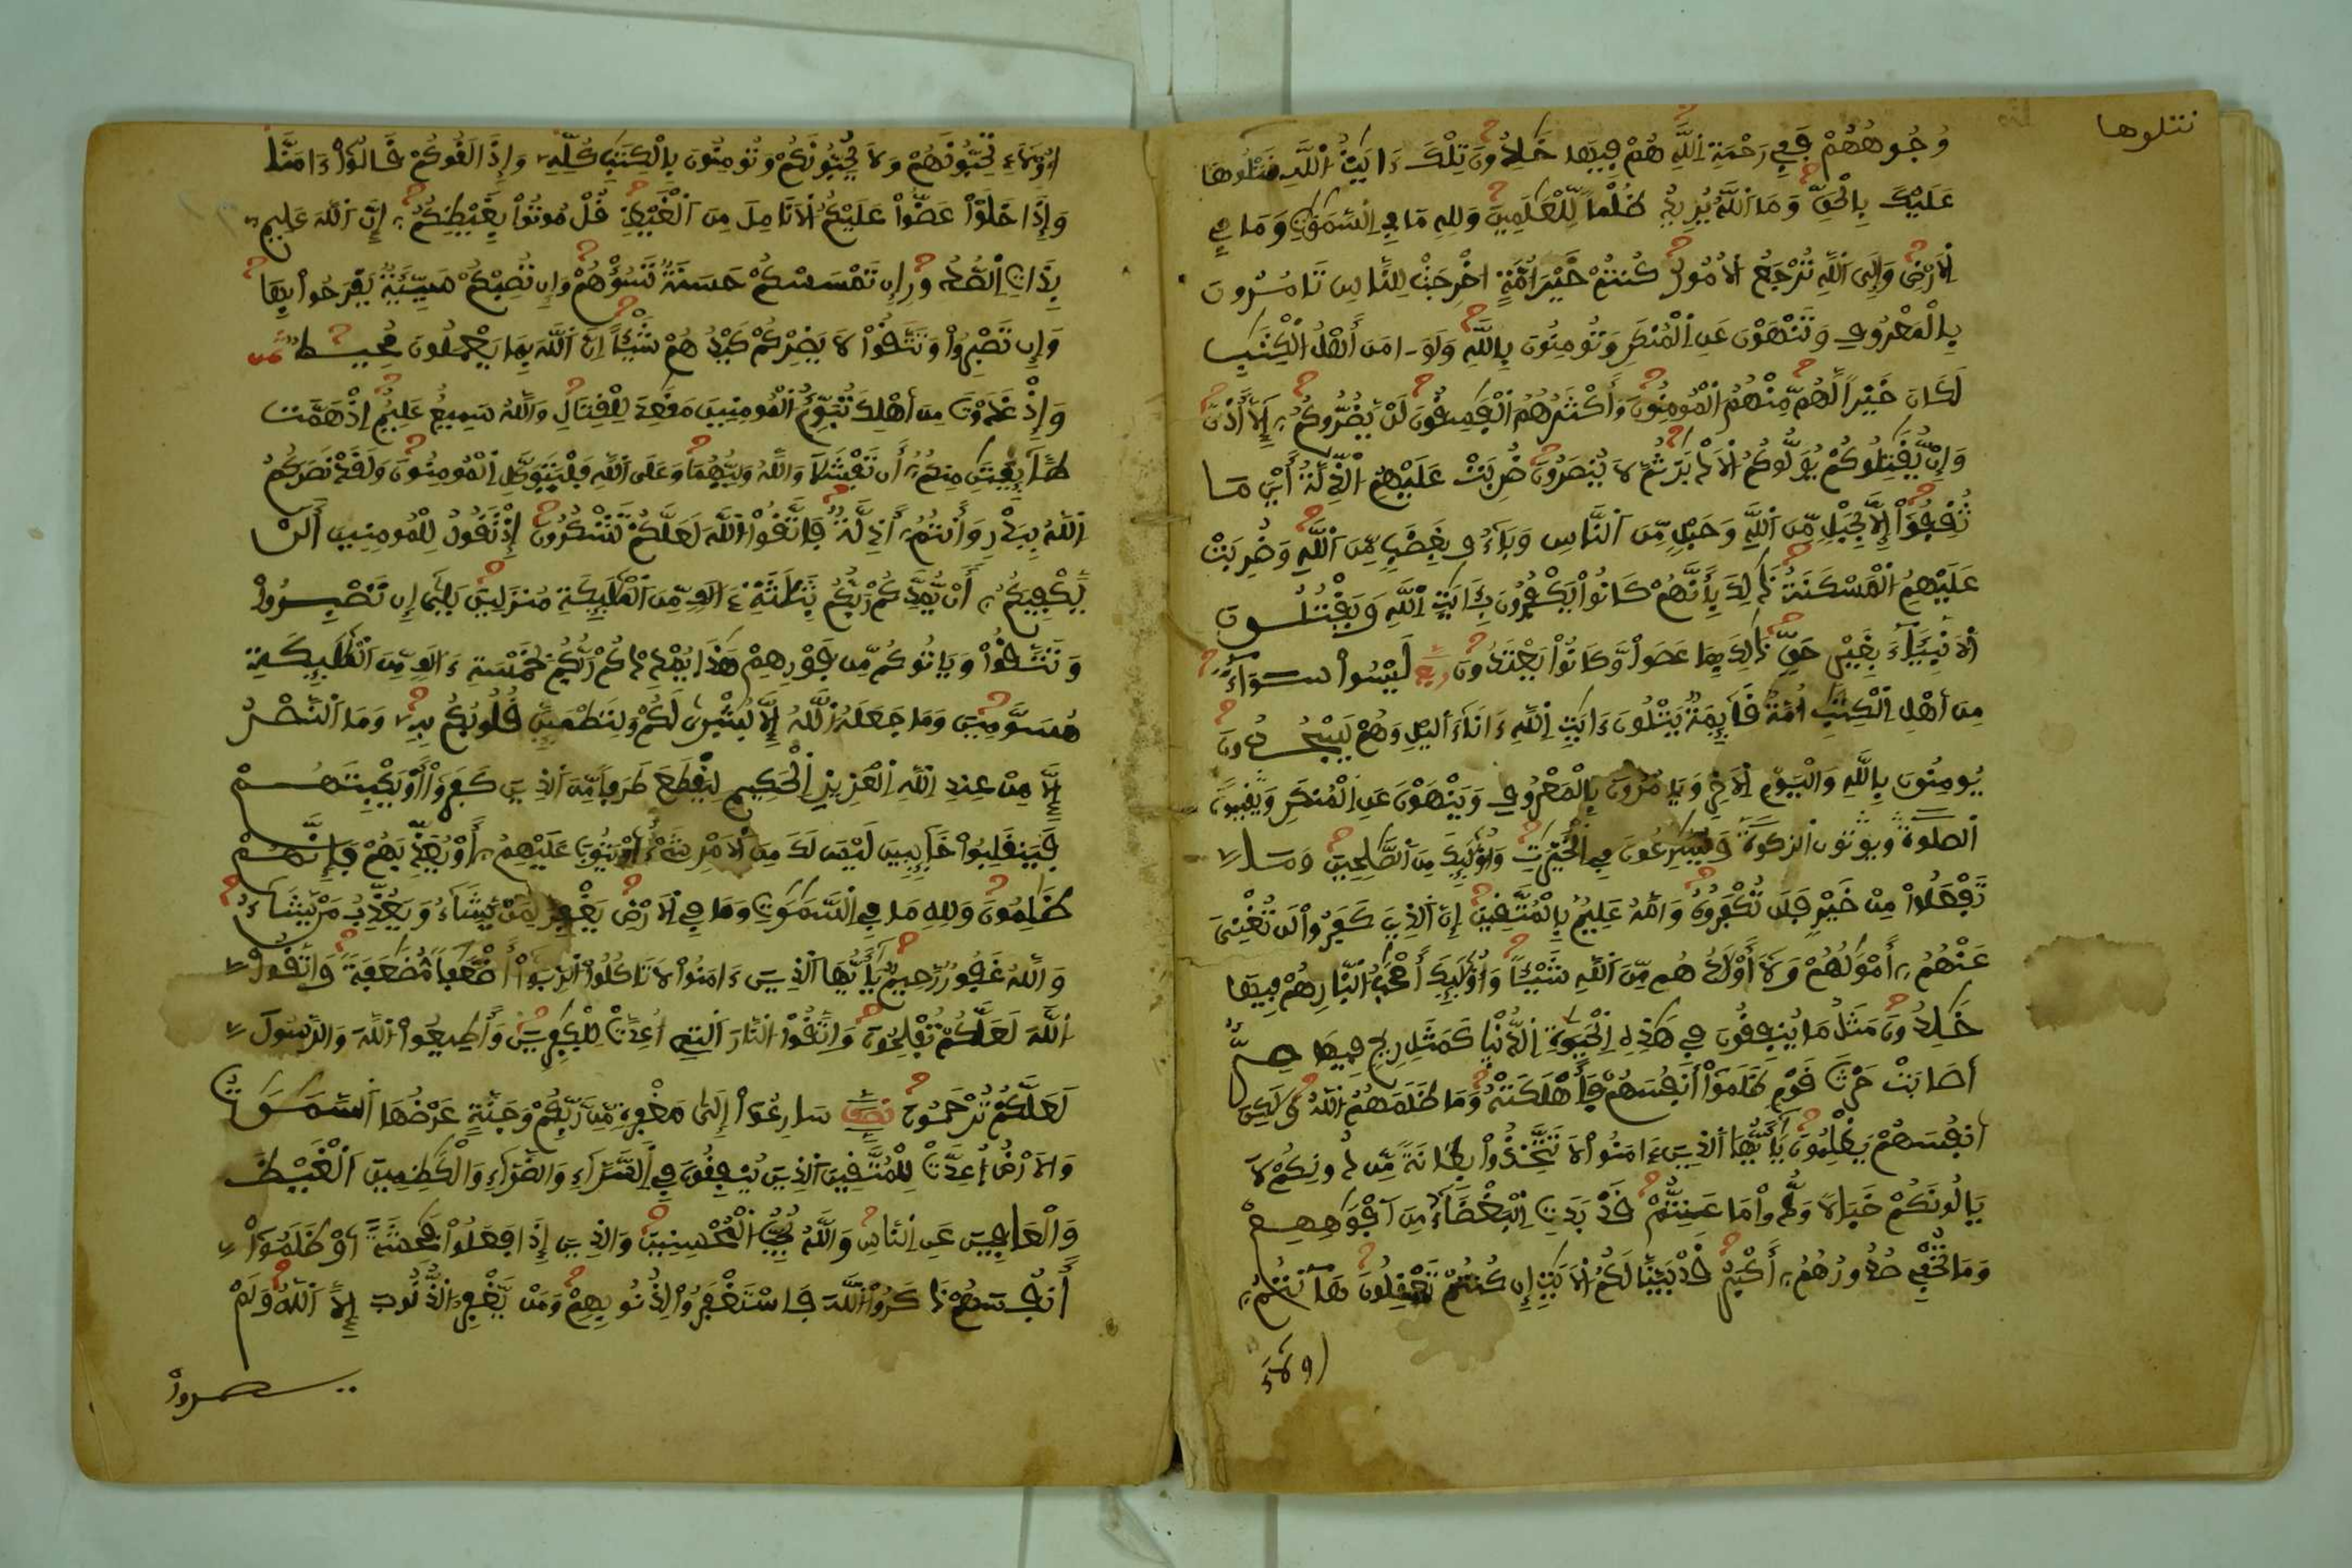 نتلوها
وُجُوهُهُمْ فَفِے رَحْمَةِ اِ۬للَّهِ هُمْ فِيهَا خَٰلِدُونَ تِلْكَ ءَايَٰتُ اُ۬للَّهِ نَتْلُوهَا
عَلَيْكَ بِالْحَقِّ وَمَا اَ۬للَّهُ يُرِيدُ ظُلْماً لِّلْعَٰلَمِينَ وَلِلهِ مَا فِے اِ۬لسَّمَٰوَٰتِ وَمَا فِے
اِ۬لَارْضِ وَإِلَى اَ۬للَّهِ تُرْجَعُ اُ۬لُامُورُ كُنتُمْ خَيْرَ أُمَّةٍ اخْرِجَتْ لِلنَّاسِ تَامُرُونَ
بِالْمَعْرُوفِ وَتَنْهَوْنَ عَنِ اِ۬لْمُنكَرِ وَتُومِنُونَ بِاللَّهِ وَلَوَ ـ امَنَ أَهْلُ اُ۬لْكِتَٰبِ
لَكَانَ خَيْراً لَّهُم مِّنْهُمُ اُ۬لْمُومِنُونَ وَأَكْثَرُهُمُ اُ۬لْفَٰسِقُونَ لَنْ يَّضُرُّوكُمُ إِلَّا أَذىً
وَإِنْ يُّقَٰتِلُوكُمْ يُوَلُّوكُمُ اُ۬لَادْبَٰرَ ثُمَّ لَا يُنصَرُونَ ضُرِبَتْ عَلَيْهِمُ اُ۬لذِّلَّةُ أَيْنَ مَا
ثُقِفُواْ إِلَّا بِحَبْلٍ مِّنَ اَ۬للَّهِ وَحَبْلٍ مِّنَ اَ۬لنَّاسِ وَبَاءُو بِغَضَبٍ مِّنَ اَ۬للَّهِ وَضُرِبَتْ
عَلَيْهِمُ اُ۬لْمَسْكَنَةُ ذَٰلِكَ بِأَنَّهُمْ كَانُواْ يَكْفُرُونَ بِـَٔايَٰتِ اِ۬للَّهِ وَيَقْتُلُونَ
اَ۬لَانۢبِيَاءَ بِغَيْرِ حَقٍّ ذَٰلِكَ بِمَا عَصَواْ وَّكَانُواْ يَعْتَدُونَ ربع لَيْسُواْ سَوَاءً
مِّنَ اَهْلِ اِ۬لْكِتَٰبِ أُمَّةٌ قَائِمَةٌ يَتْلُونَ ءَايَٰتِ اِ۬للَّهِ ءَانَاءَ اَ۬ليْلِ وَهُمْ يَسْجُدُونَ
يُومِنُونَ بِاللَّهِ وَالْيَوْمِ اِ۬لَاخِرِ وَيَامُرُونَ بِالْمَعْرُوفِ وَيَنْهَوْنَ عَنِ اِ۬لْمُنكَرِ وَيُقِيمُونَ
اَ۬لصَّلَوٰةَ وَيُوتُونَ اَ۬لزَّكَوٰةَ وَيُسَٰرِعُونَ فِے اِ۬لْخَيْرَٰتِ وَأُوْلَٰئِكَ مِنَ اَ۬لصَّٰلِحِينَ وَمَا
تَفْعَلُواْ مِنْ خَيْرٍ فَلَن تُكْفَرُوهُ وَاللَّهُ عَلِيمٌ بِالْمُتَّقِينَ إِنَّ اَ۬لذِينَ كَفَرُواْ لَن تُغْنِيَ
عَنْهُمُ أَمْوَٰلُهُمْ وَلَا أَوْلَٰدُهُم مِّنَ اَ۬للَّهِ شَيْـٔاً وَأُوْلَٰئِكَ أَصْحَٰبُ اُ۬لنَّارِ هُمْ فِيهَا
خَٰلِدُونَ مَثَلُ مَا يُنفِقُونَ فِے هَٰذِهِ اِ۬لْحَيَوٰةِ اِ۬لدُّنْيَا كَمَثَلِ رِيحٍ فِيهَا صِرٌّ
أَصَابَتْ حَرْثَ قَوْمٍ ظَلَمُواْ أَنفُسَهُمْ فَأَهْلَكَتْهُ وَمَا ظَلَمَهُمُ اُ۬للَّهُ وَلَٰكِنَ
اَنفُسَهُمْ يَظْلِمُونَ يَٰأَيُّهَا اَ۬لذِينَ ءَامَنُواْ لَا تَتَّخِذُواْ بِطَانَةً مِّن دُونِكُمْ لَا
يَالُونَكُمْ خَبَالاً وَدُّواْ مَا عَنِتُّمْ قَدْ بَدَتِ اِ۬لْبَغْضَاءُ مِنَ اَفْوَٰهِهِمْ
وَمَا تُخْفِے صُدُورُهُمُ أَكْبَرُ قَدْ بَيَّنَّا لَكُمُ اُ۬لَايَٰتِ إِن كُنتُمْ تَعْقِلُونَ هَٰانتُمُ
أولاء
أُوْلَاءِ تُحِبُّونَهُمْ وَلَا يُحِبُّونَكُمْ وَتُومِنُونَ بِالْكِتَٰبِ كُلِّهِ وَإِذَا لَقُوكُمْ قَالُواْ ءَامَنَّا
وَإِذَا خَلَوْاْ عَضُّواْ عَلَيْكُمُ اُ۬لَانَامِلَ مِنَ اَ۬لْغَيْظِ قُلْ مُوتُواْ بِغَيْظِكُمُ إِنَّ اَ۬للَّهَ عَلِيمٌ
بِذَاتِ اِ۬لصُّدُورِ إِن تَمْسَسْكُمْ حَسَنَةٌ تَسُؤْهُمْ وَإِن تُصِبْكُمْ سَيِّئَةٌ يَفْرَحُواْ بِهَا
وَإِن تَصْبِرُواْ وَتَتَّقُواْ لَا يَضِرْكُمْ كَيْدُهُمْ شَيْـٔاً اِنَّ اَ۬للَّهَ بِمَا يَعْمَلُونَ مُحِيطٌ ثمن
وَإِذْ غَدَوْتَ مِنَ اَهْلِكَ تُبَوِّئُ اُ۬لْمُومِنِينَ مَقَٰعِدَ لِلْقِتَالِ وَاللَّهُ سَمِيعٌ عَلِيمٌ اِذْ هَمَّت
طَّائِفَتَٰنِ مِنكُمُ أَن تَفْشَلَا وَاللَّهُ وَلِيُّهُمَا وَعَلَى اَ۬للَّهِ فَلْيَتَوَكَّلِ اِ۬لْمُومِنُونَ وَلَقَدْ نَصَرَكُمُ
اُ۬للَّهُ بِبَدْرٍ وَأَنتُمُ أَذِلَّةٌ فَاتَّقُواْ اُ۬للَّهَ لَعَلَّكُمْ تَشْكُرُونَ إِذْ تَقُولُ لِلْمُومِنِينَ أَلَنْ
يَّكْفِيَكُمُ أَنْ يُّمِدَّكُمْ رَبُّكُم بِثَلَٰثَةِ ءَالَٰفٍ مِّنَ اَ۬لْمَلَٰئِكَةِ مُنزَلِينَ بَلَىٰ إِن تَصْبِرُواْ
وَتَتَّقُواْ وَيَاتُوكُم مِّن فَوْرِهِمْ هَٰذَا يُمْدِدْكُمْ رَبُّكُم بِخَمْسَةِ ءَالَٰفٍ مِّنَ اَ۬لْمَلَٰئِكَةِ
مُسَوَّمِينَ وَمَا جَعَلَهُ اُ۬للَّهُ إِلَّا بُشْرَىٰ لَكُمْ وَلِتَطْمَئِنَّ قُلُوبُكُم بِهِ وَمَا اَ۬لنَّصْرُ
إِلَّا مِنْ عِندِ اِ۬للَّهِ اِ۬لْعَزِيزِ اِ۬لْحَكِيمِ لِيَقْطَعَ طَرَفاً مِّنَ اَ۬لذِينَ كَفَرُواْ أَوْ يَكْبِتَهُمْ
فَيَنقَلِبُواْ خَائِبِينَ لَيْسَ لَكَ مِنَ اَ۬لَامْرِ شَےْءٌ اَوْ يَتُوبَ عَلَيْهِمُ أَوْ يُعَذِّبَهُمْ فَإِنَّهُمْ
ظَٰلِمُونَ وَلِلهِ مَا فِے اِ۬لسَّمَٰوَٰتِ وَمَا فِے اِ۬لَارْضِ يَغْفِرُ لِمَنْ يَّشَاءُ وَيُعَذِّبُ مَنْ يَّشَاءُ
وَاللَّهُ غَفُورٌ رَّحِيمٌ يَٰأَيُّهَا اَ۬لذِينَ ءَامَنُواْ لَا تَاكُلُواْ اُ۬لرِّبَوٰاْ أَضْعَٰفاً مُّضَٰعَفَةً وَاتَّقُواْ
اُ۬للَّهَ لَعَلَّكُمْ تُفْلِحُونَ وَاتَّقُواْ اُ۬لنَّارَ اَ۬لتِے أُعِدَّتْ لِلْكٰفِرِينَ وَأَطِيعُواْ اُ۬للَّهَ وَالرَّسُولَ
لَعَلَّكُمْ تُرْحَمُونَ نصف سَارِعُواْ إِلَىٰ مَغْفِرَةٍ مِّن رَّبِّكُمْ وَجَنَّةٍ عَرْضُهَا اَ۬لسَّمَٰوَٰتُ
وَالَارْضُ أُعِدَّتْ لِلْمُتَّقِينَ اَ۬لذِينَ يُنفِقُونَ فِے اِ۬لسَّرَّاءِ وَالضَّرَّاءِ وَالْكَٰظِمِينَ اَ۬لْغَيْظَ
وَالْعَافِينَ عَنِ اِ۬لنَّاسِ وَاللَّهُ يُحِبُّ اُ۬لْمُحْسِنِينَ وَالذِينَ إِذَا فَعَلُواْ فَٰحِشَةً اَوْ ظَلَمُواْ
أَنفُسَهُمْ ذَكَرُواْ اُ۬للَّهَ فَاسْتَغْفَرُواْ لِذُنُوبِهِمْ وَمَنْ يَّغْفِرُ اُ۬لذُّنُوبَ إِلَّا اَ۬للَّهُ وَلَمْ
يصروا